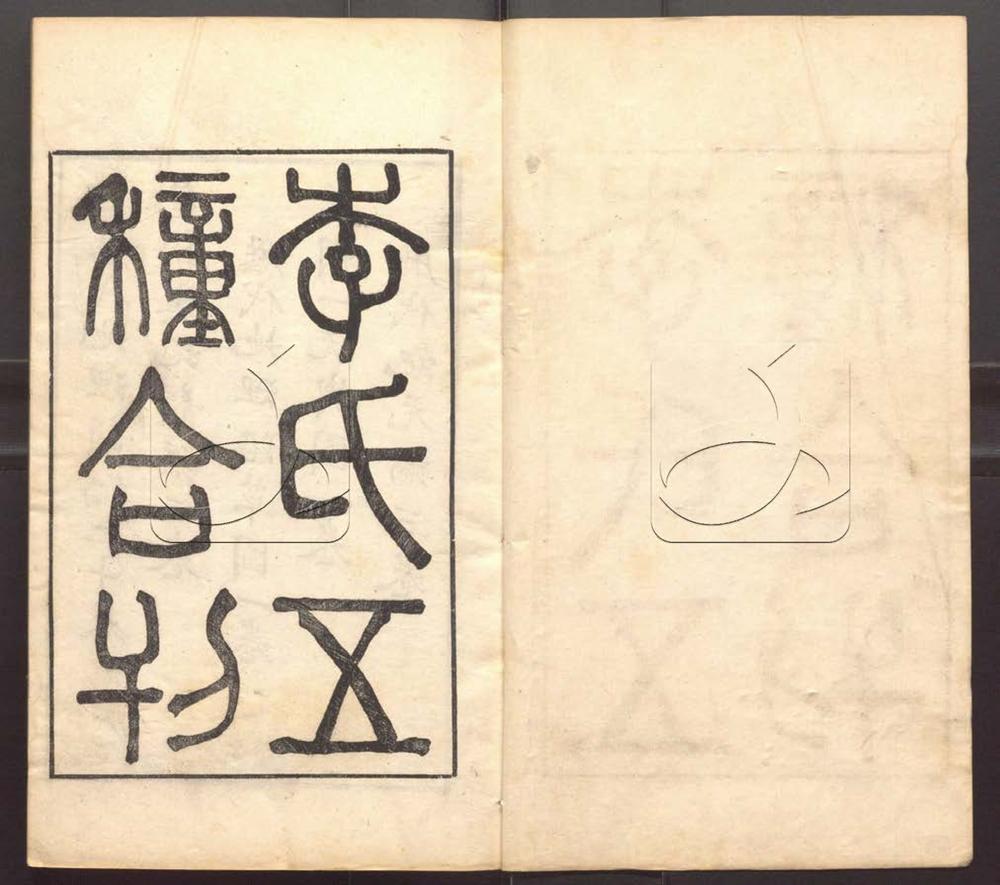 李氏五
種合刊